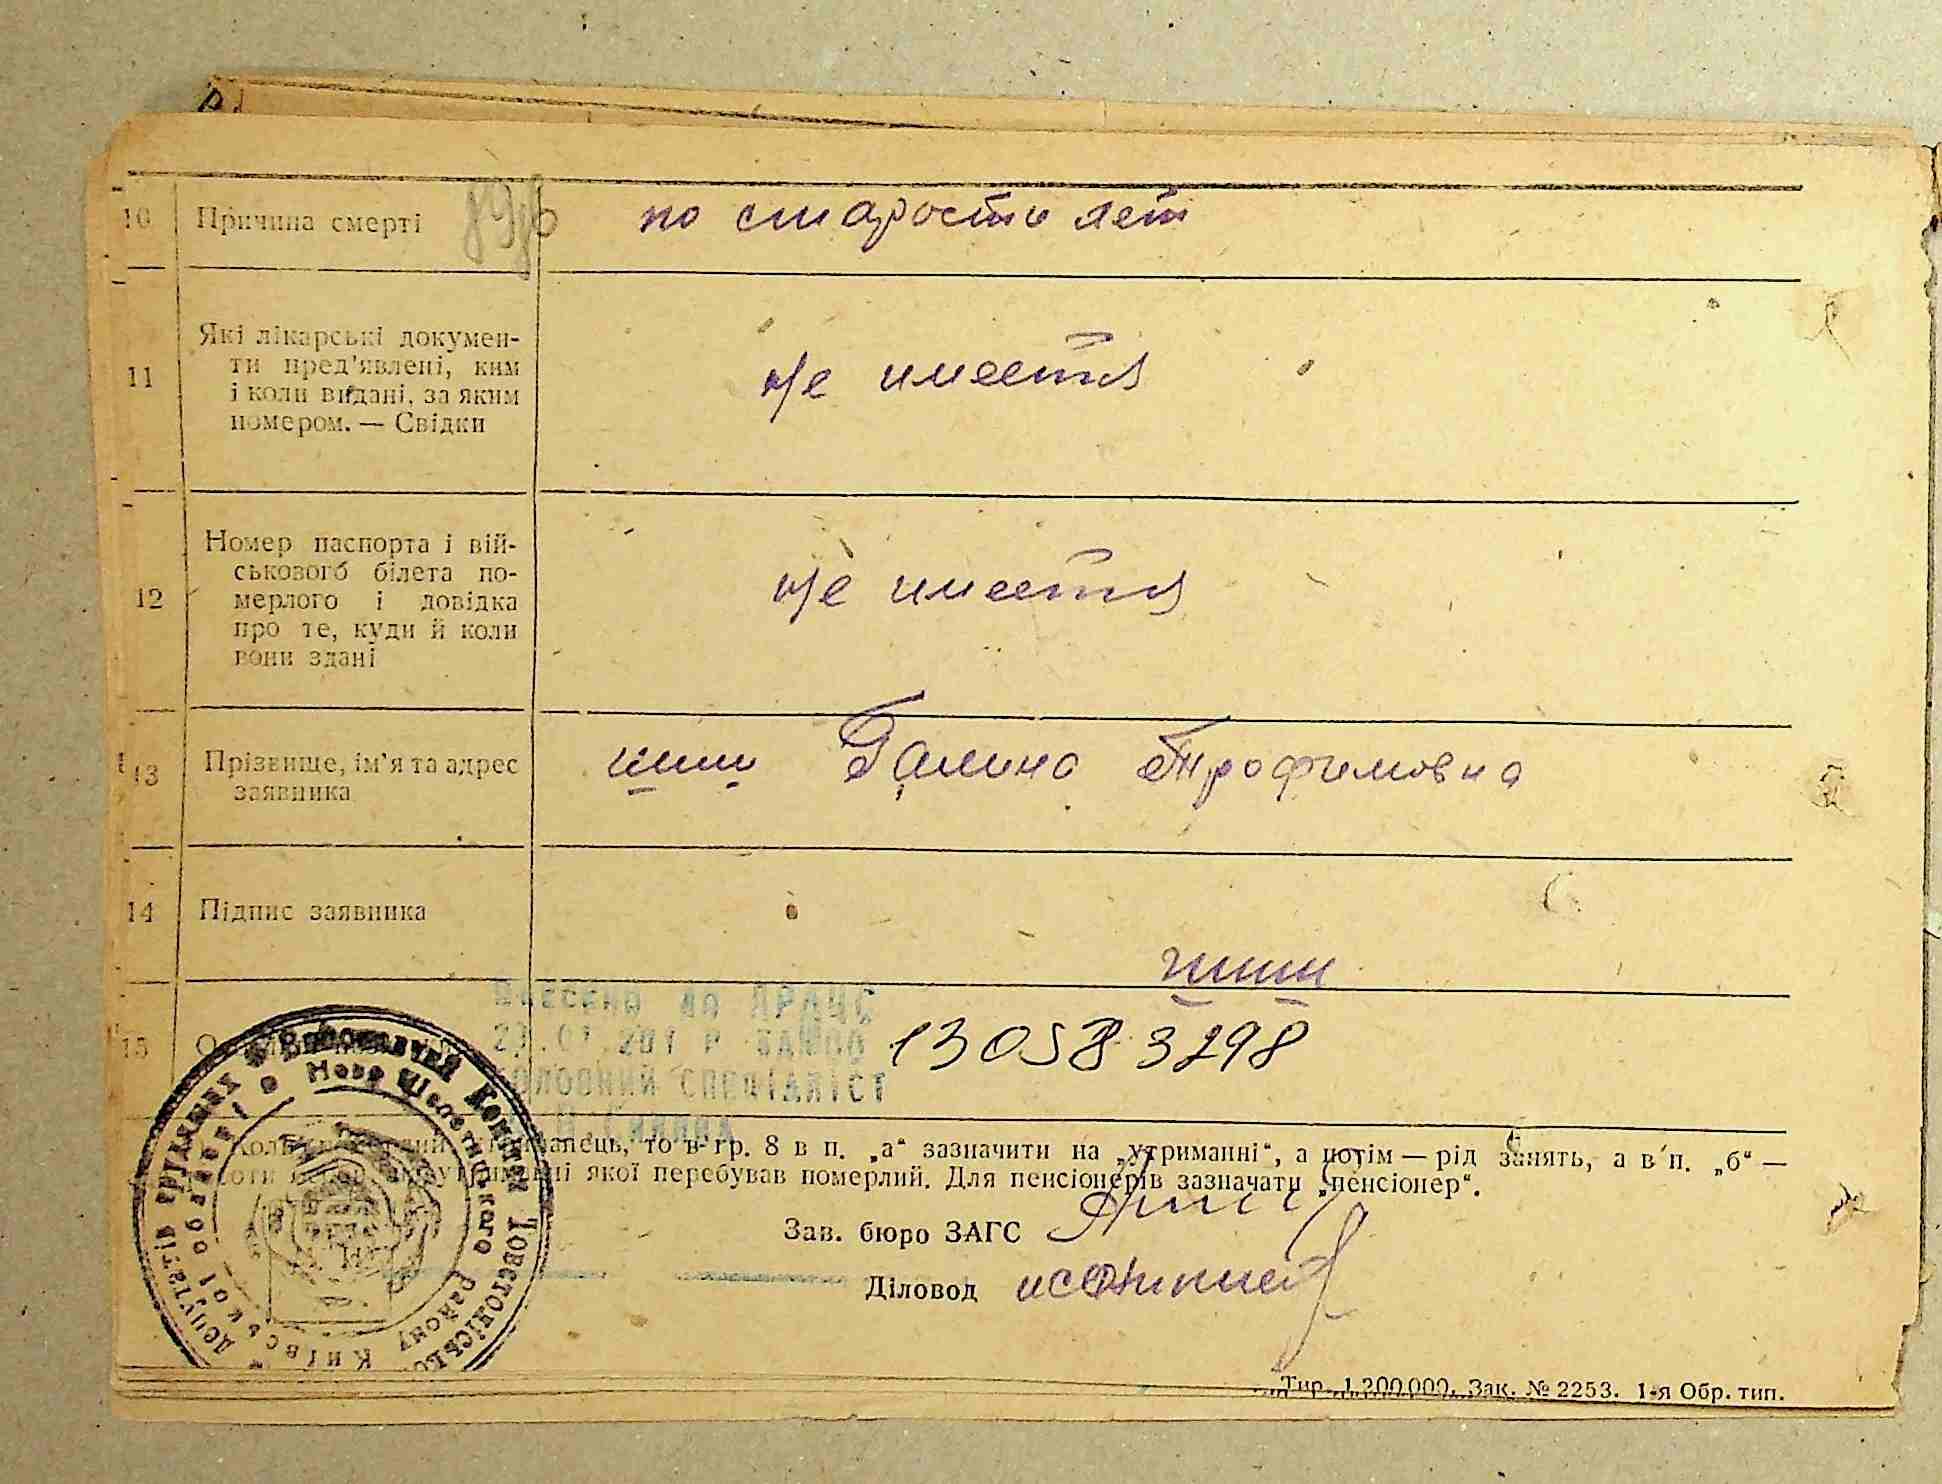 10 Причина смерті по старости лет
11 Які лікарські докумен-
ти пред'явлені, ким
і коли видані, за яким
номером. — Свідки
не имеется
12 Номер паспорта і вій-
ськового білета по-
мерлого і довідка
про те, куди й коли
вони здані
не имеется
13 Прізвище, ім'я та адрес
заявника
шиш Галина Трофимовна
14 Підпис заявника
шиш
15
внесено до ДРАЦС
головний спеціаліст
то в гр. 8 в п. „а“ зазначити на „утриманні“, а потім — рід занять, а в п. „б“ —
якої перебував померлий. Для пенсіонерів зазначати „пенсіонер“.
Зав. бюро ЗАГС
Діловод
Виконавчий Комітет
депутатів трудящих
Київської області
району
Тир. 1.200.000. Зак. № 2253. 1-я Обр. тип.